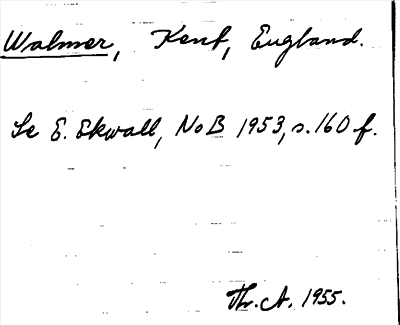 Walmer, Kent, England.
Se E. Ekwall, NoB 1953, s. 160 f.
Th. A. 1955.